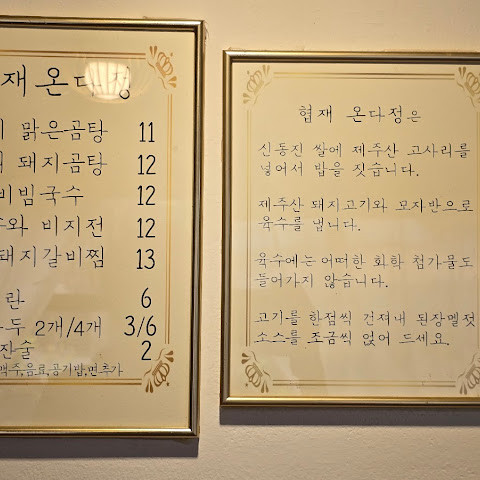 재 온다정
맑은곰탕 11
돼지곰탕 12
비빔국수 12
와 비지전 12
돼지갈비찜 13
란 6
두 2개/4개 3/6
잔술 2
맥주,음료,공기밥,면추가
협재 온다정은
신동진 쌀에 제주산 고사리를
넣어서 밥을 짓습니다.
제주산 돼지고기와 모자반으로
육수를 냅니다.
육수에는 어떠한 화학 첨가물도
들어가지 않습니다.
고기를 한점씩 건져내 된장멜젓
소스를 조금씩 얹어 드세요.